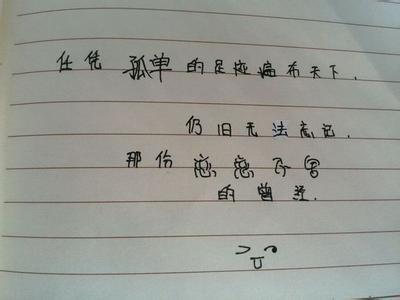 任凭孤单的足迹遍布天下.
仍旧无法忘记.
那份恋恋不舍
的曾经.